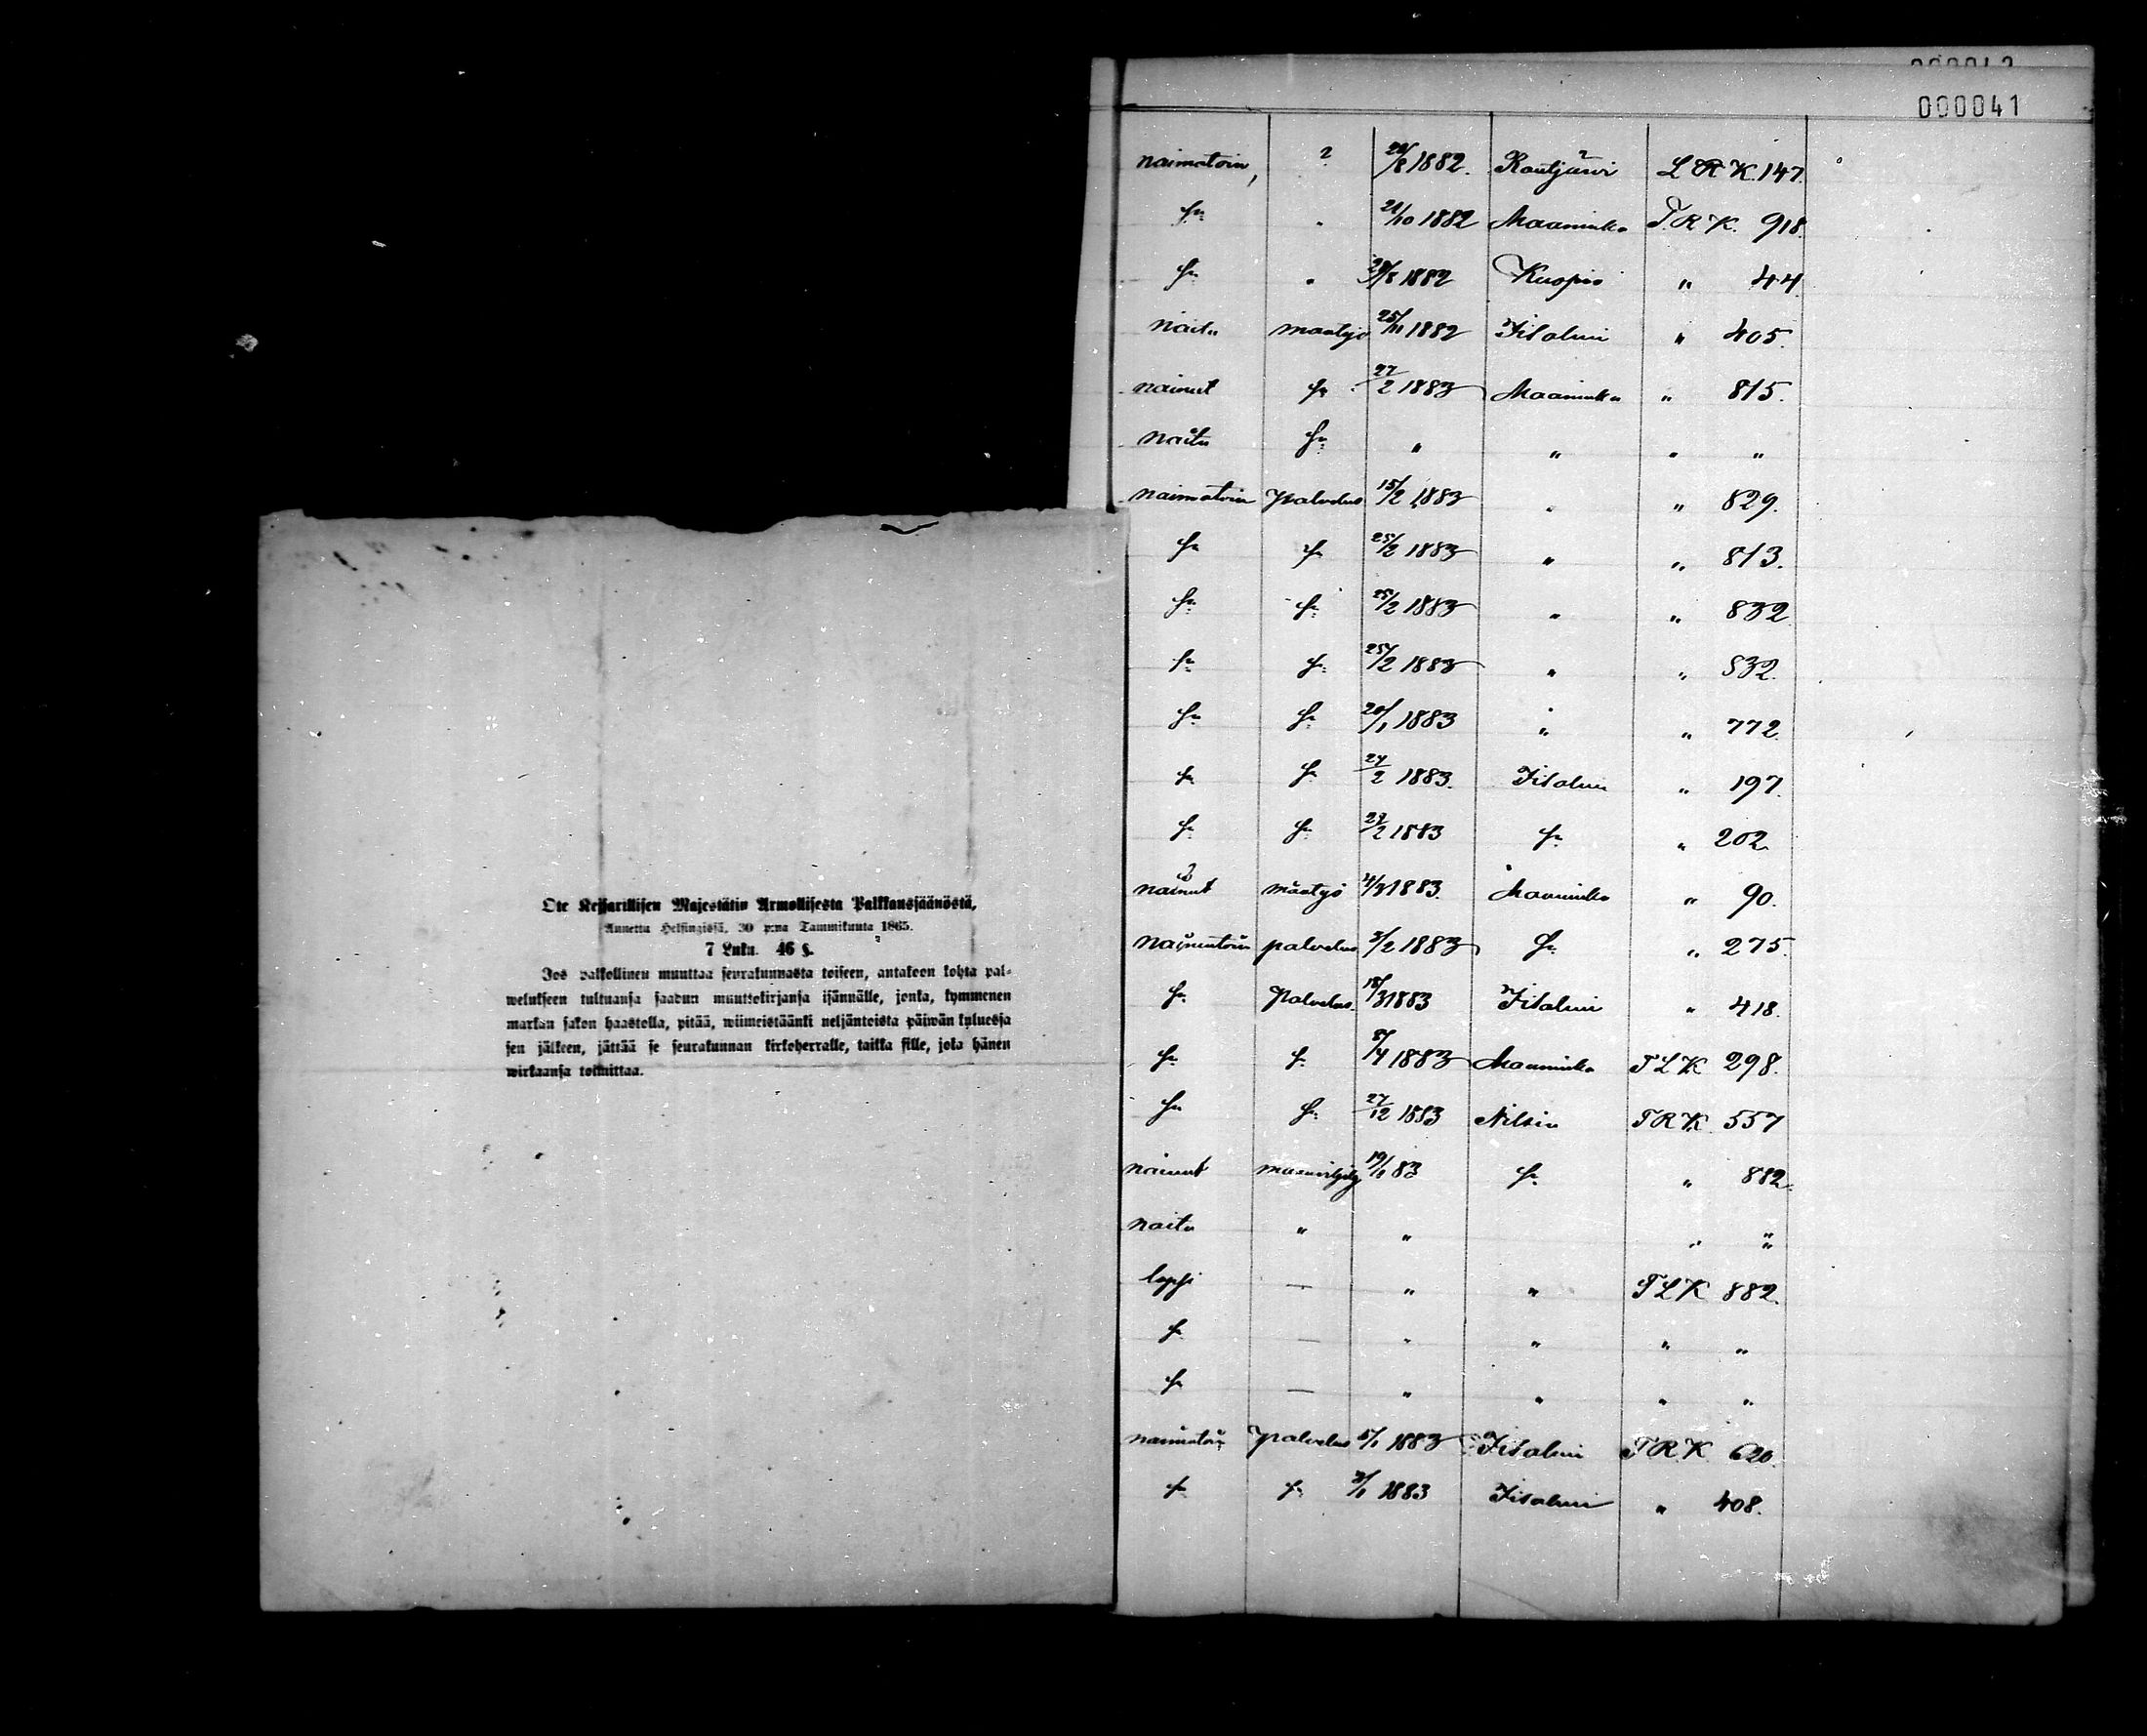 Ote Keisarillisen Majestätin Armollisesta Palkkaussäänöstä,
Annettu Helsingissä, 30 p:nä Tammikuuta 1865.
7 Luku. 46 §.
Jos palkollinen muuttaa seurakunnasta toiseen, antakoon kohta pal-
welukseen tultuansa saadun muuttokirjansa isännälle, jonka, kymmenen
markan sakon haastolla, pitää, wiimeistäänki neljäntoista päiwän kuluessa
sen jälkeen, jättää se seurakunnan kirkoherralle, taikka sille, joka hänen
wirkaansa toimittaa.
000041
naimatoin, ? /8 1882. Rautjärvi L R K. 147.
21/10 1882 Maaninka T. R K. 918.
/8 1882 Kuopio " 44.
naitu maatyö 25/11 1882 Iisalmi " 405.
nainut 27/2 1883 Maaninka " 815.
naitu " " " "
naimatoin palvelus 15/2 1883 " " 829.
25/2 1883 " " 813.
25/2 1883 " " 832
25/2 1883 " " 832.
20/1 1883 " " 772.
24/2 1883. Iisalmi " 197.
/2 1883 " 202.
nainut maatyö 4/3 1883. Maaninka " 90.
naimatoin palvelus 3/2 1883 " 275.
Palvelus 18/3 1883 Iisalmi " 418.
8/4 1883 Maaninka T L K 298.
27/12 1883 Nilsiä T R K. 557
nainut maanviljelys 19/1 83 " 882.
naitu " " " "
lapsi — " " T L K 882.
— " " " "
— " " " "
naimatoin Palvelus 5/1 1883 Iisalmi T R K 620.
3/1 1883 Iisalmi " 408.